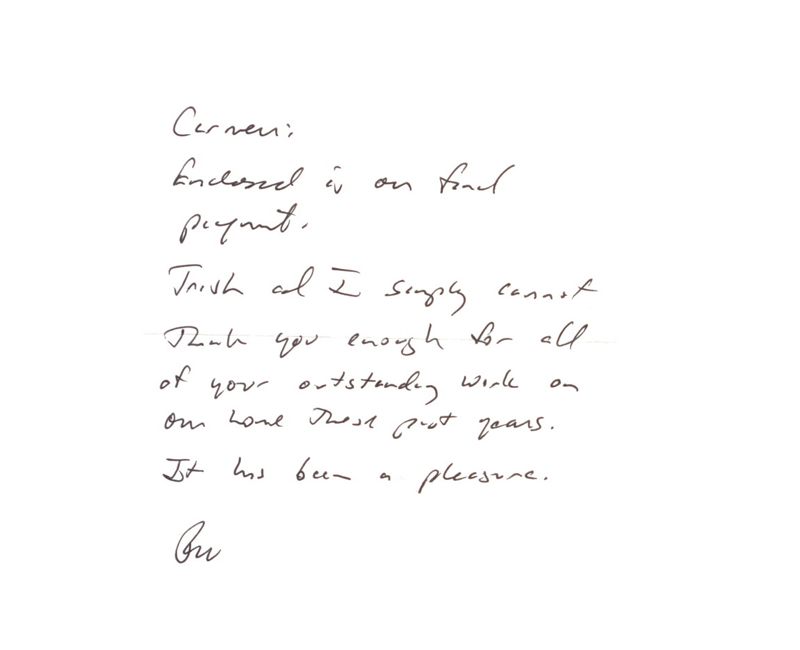 Carmen:
Enclosed is our final
payment.
Trish and I simply cannot
Thank you enough for all
of your outstanding work on
our home These past years.
It has been a pleasure.